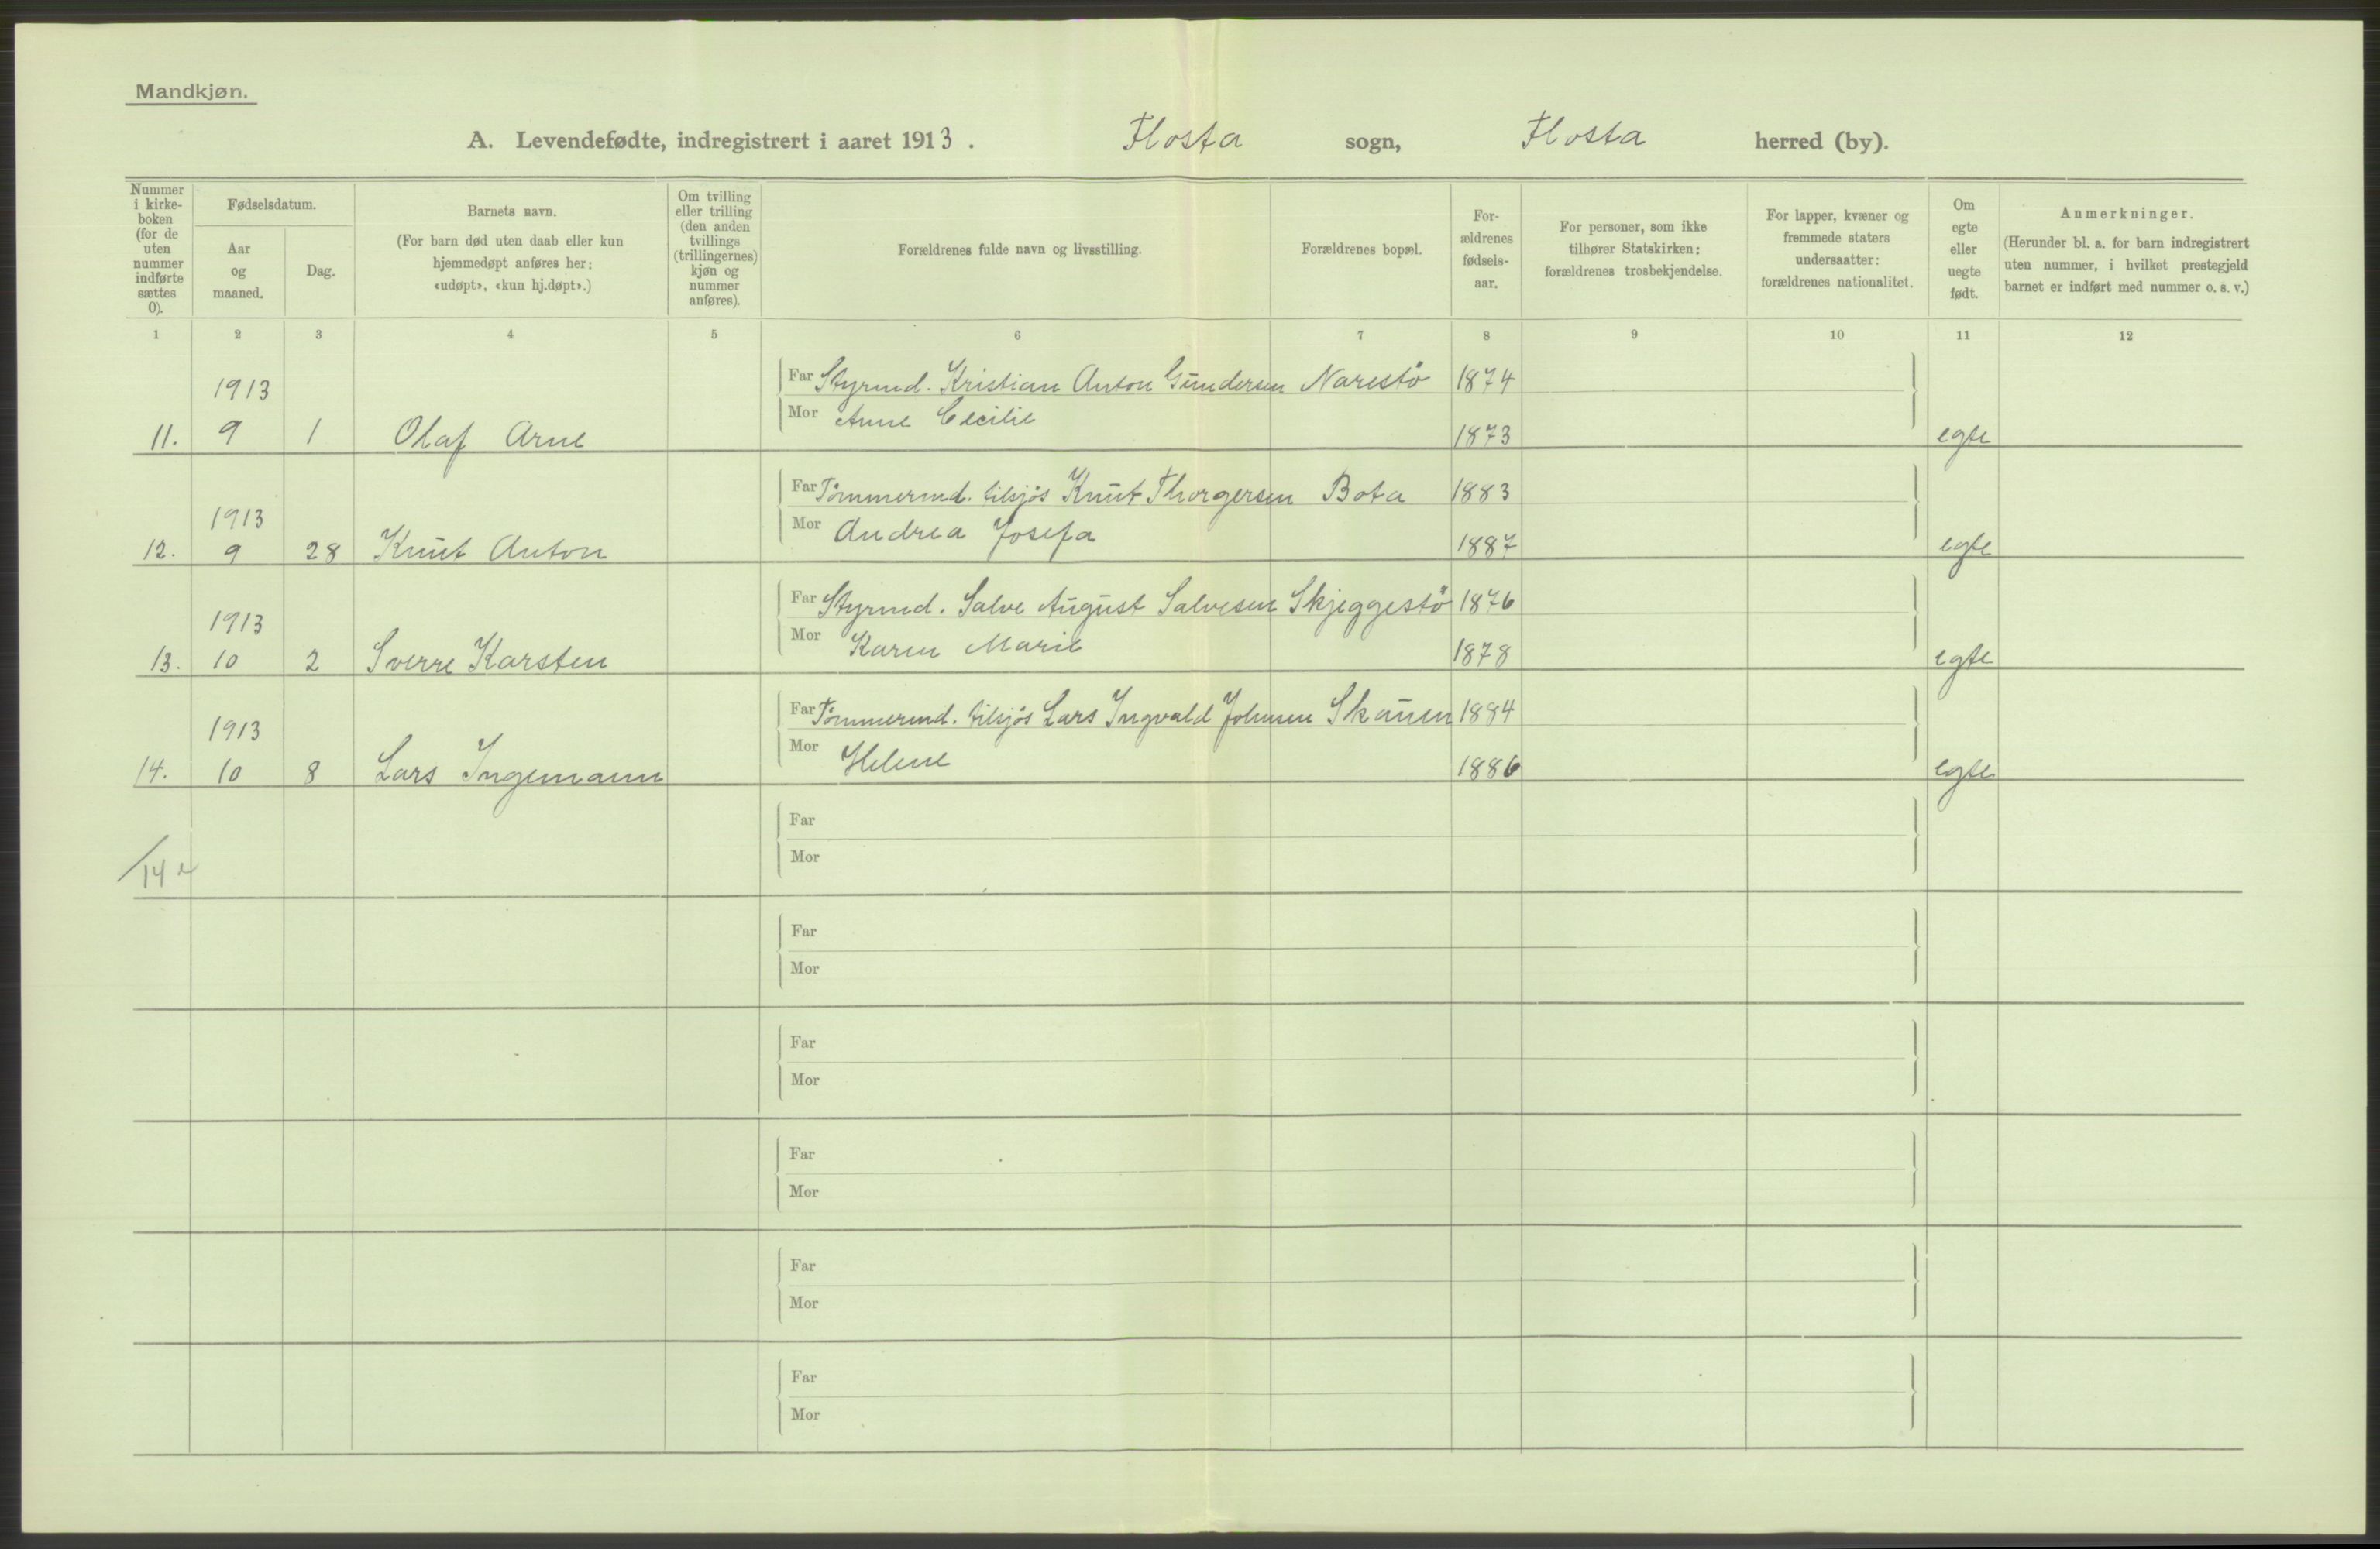 Mandkjøn.
A. Levendefødte, indregistrert i aaret 1913. Flosta sogn, Flosta herred (by).
Nummer i kirkeboken (for de uten nummer indførte sættes 0).
Fødselsdatum.
Aar og maaned.
Dag.
Barnets navn.
(For barn død uten daab eller kun hjemmedøpt anføres her: «udøpt», «kun hj.døpt».)
Om tvilling eller trilling (den anden tvillings (trillingernes) kjøn og nummer anføres).
Forældrenes fulde navn og livsstilling.
Forældrenes bopæl.
Forældrenes fødselsaar.
For personer, som ikke tilhører Statskirken: forældrenes trosbekjendelse.
For lapper, kvæner og fremmede staters undersaatter: forældrenes nationalitet.
Om egte eller uegte født.
Anmerkninger.
(Herunder bl. a. for barn indregistrert uten nummer, i hvilket prestegjeld barnet er indført med nummer o. s. v.)
1 2 3 4 5 6 7 8 9 10 11 12
1913 Far Styrmd. Kristian Anton Gundersen Narestö 1874
Mor Anne Cecilie
11. 9 1 Olaf Arne 1873 egte
Far Tömmermd. tilsjös Knut Thorgersen Bota 1883
1913 Mor Andrea Josefa
12. 9 28 Knut Anton 1887 egte
Far Styrmd. Salve August Salvesen Skjeggestö 1876
1913 Mor Karen Marie
13. 10 2 Sverre Karsten 1878 egte
Far Tömmermd. tilsjös Lars Ingvald Johnsen Skauen 1884
1913 Mor Helene
14. 10 8 Lars Ingemann 1886 egte
Far
Mor
14
Far
Mor
Far
Mor
Far
Mor
Far
Mor
Far
Mor